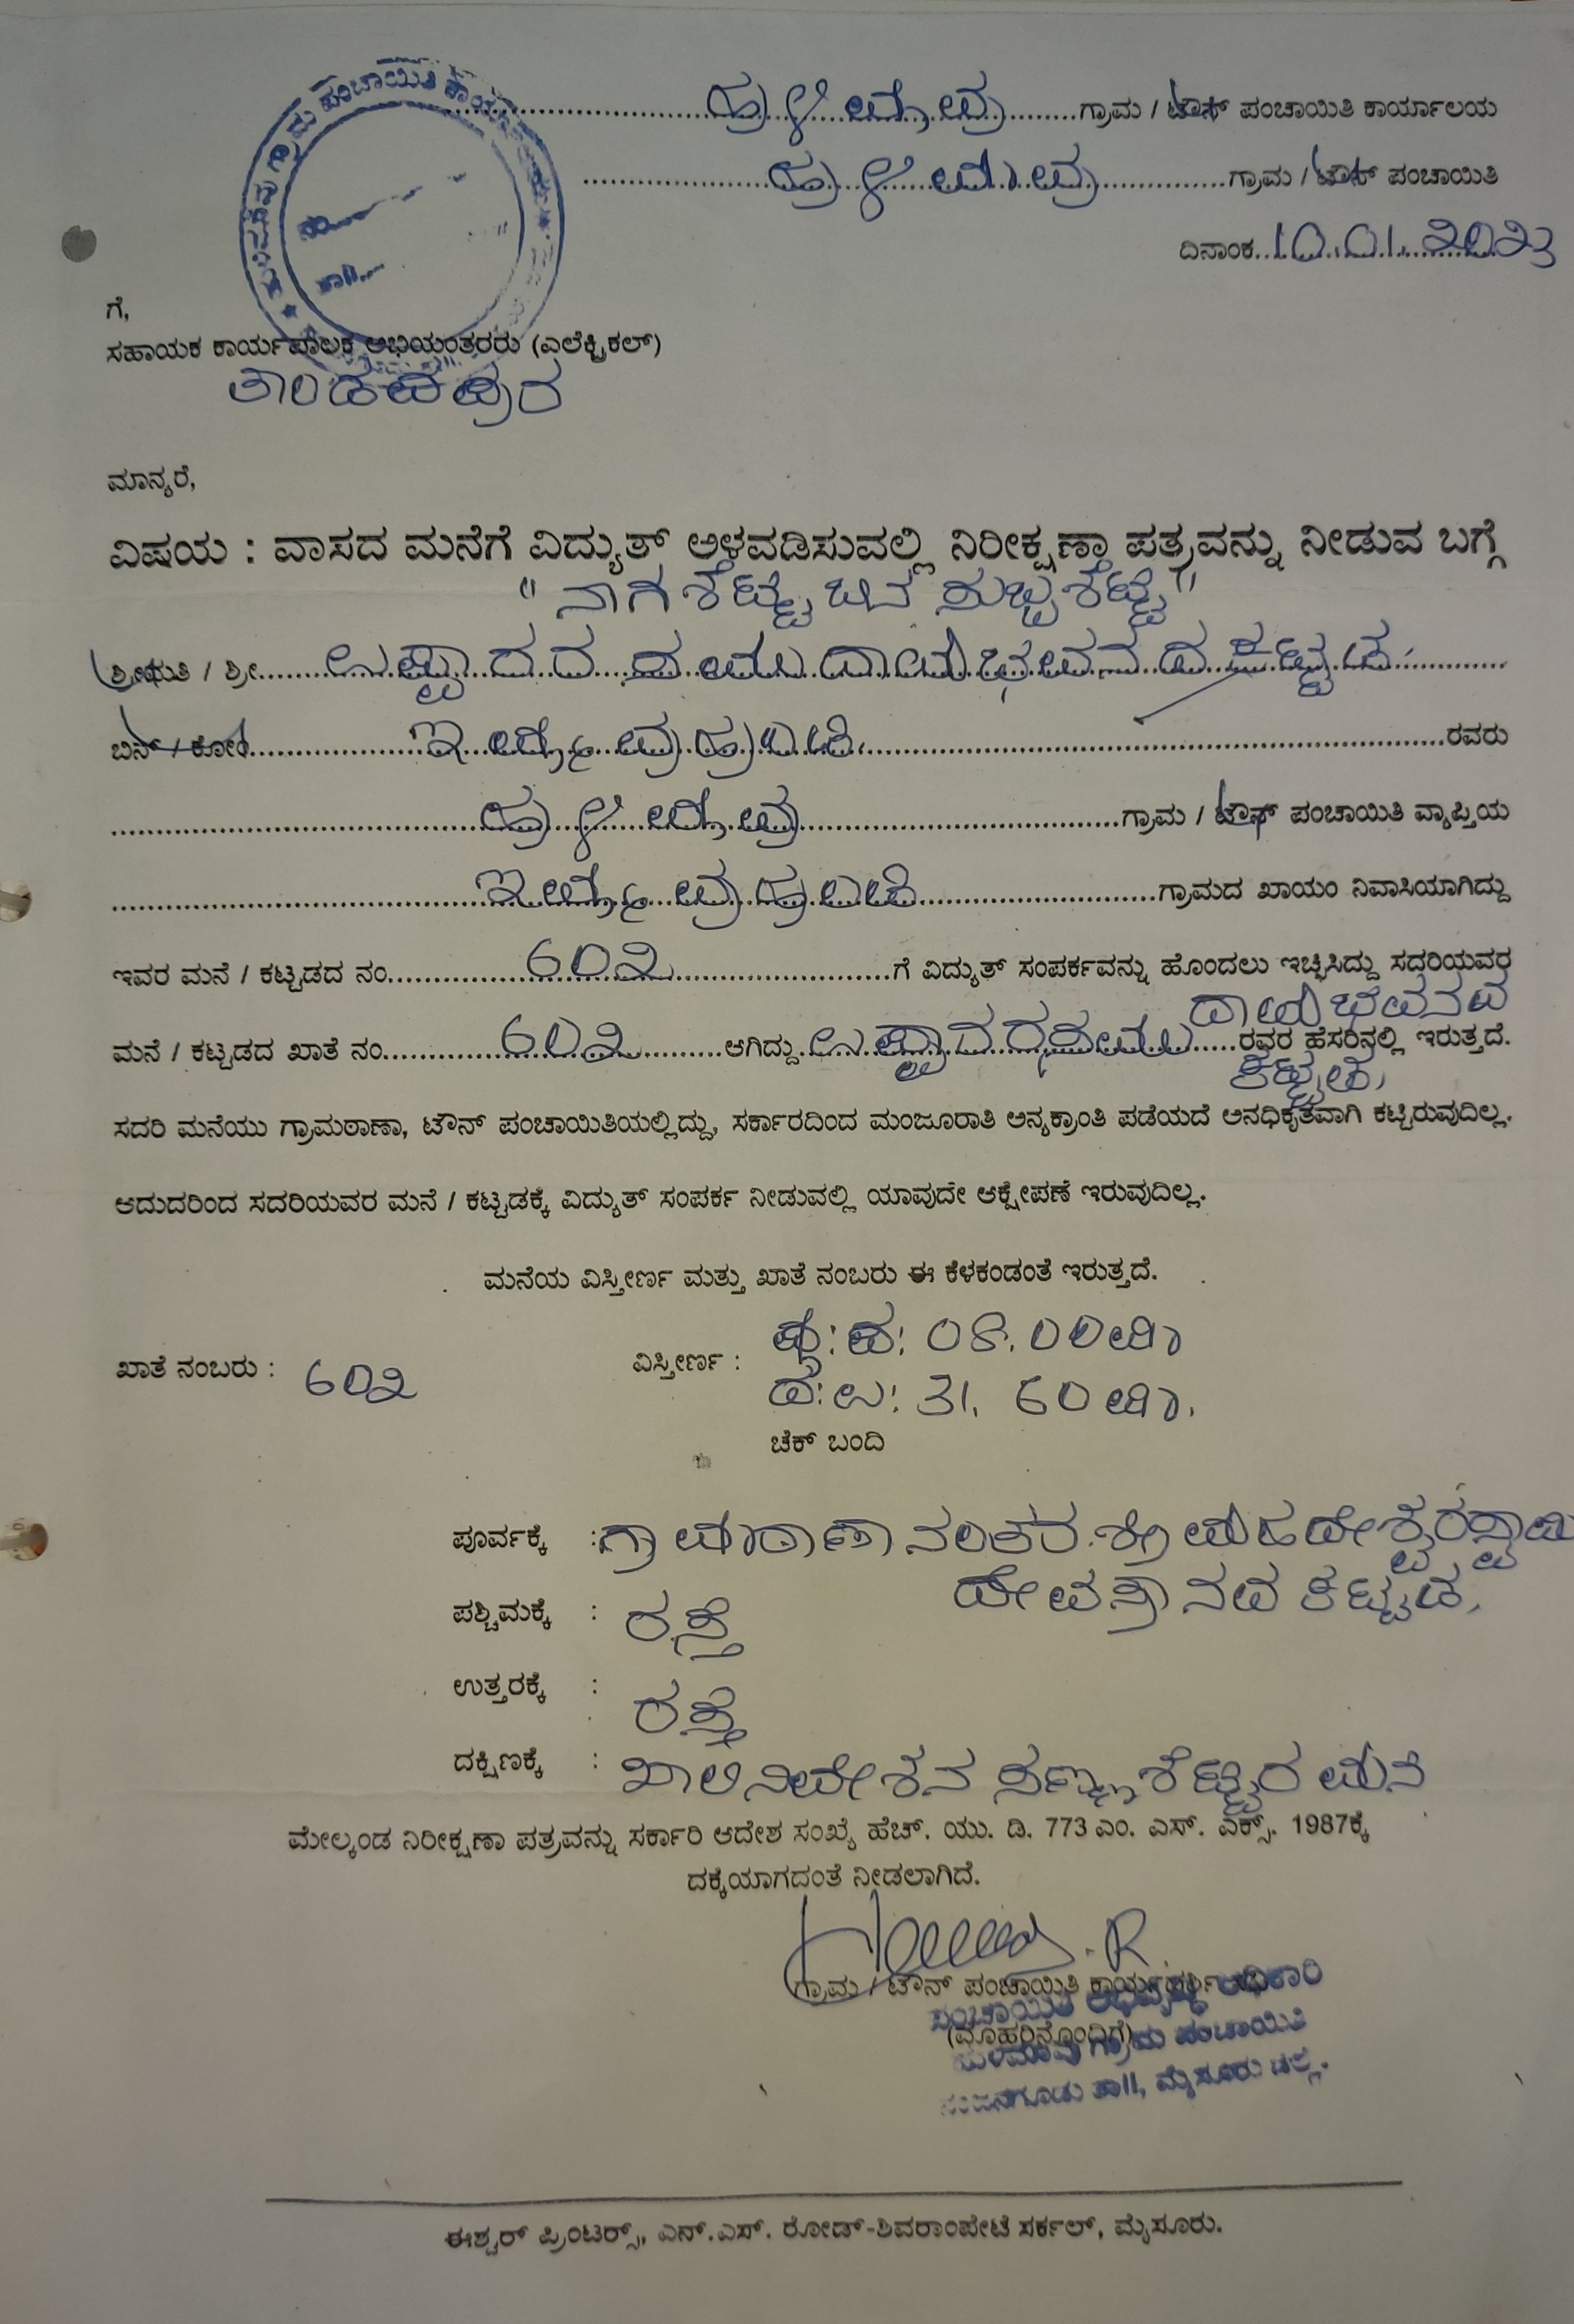 ಹುಳಿಮಾವು ಗ್ರಾಮ / ಟೌನ್ ಪಂಚಾಯಿತಿ ಕಾರ್ಯಾಲಯ
ಹುಳಿಮಾವು ಗ್ರಾಮ / ಟೌನ್ ಪಂಚಾಯಿತಿ
ದಿನಾಂಕ 10.01.2023
ಗ್ರಾಮ ಪಂಚಾಯಿತಿ
ಗೆ,
ಸಹಾಯಕ ಕಾರ್ಯಪಾಲಕ ಅಭಿಯಂತರರು (ಎಲೆಕ್ಟ್ರಿಕಲ್)
ತಾಂಡವಪುರ
ಮಾನ್ಯರೆ,
ವಿಷಯ : ವಾಸದ ಮನೆಗೆ ವಿದ್ಯುತ್ ಅಳವಡಿಸುವಲ್ಲಿ ನಿರೀಕ್ಷಣಾ ಪತ್ರವನ್ನು ನೀಡುವ ಬಗ್ಗೆ
" ನಾಗಶೆಟ್ಟಿ ಬಿನ ಸುಬ್ಬಶೆಟ್ಟಿ "
ಶ್ರೀಮತಿ / ಶ್ರೀ ಉಪ್ಪಾರರ ಸಮುದಾಯಭವನದ ಕಟ್ಟಡ.
ಬಿನ್ / ಕೋಂ ಇಮ್ಮಾವುಹುಂಡಿ. ರವರು
ಹುಳಿಮಾವು ಗ್ರಾಮ / ಟೌನ್ ಪಂಚಾಯಿತಿ ವ್ಯಾಪ್ತಿಯ
ಇಮ್ಮಾವುಹುಂಡಿ ಗ್ರಾಮದ ಖಾಯಂ ನಿವಾಸಿಯಾಗಿದ್ದು
ಇವರ ಮನೆ / ಕಟ್ಟಡದ ನಂ. 602 ಗೆ ವಿದ್ಯುತ್ ಸಂಪರ್ಕವನ್ನು ಹೊಂದಲು ಇಚ್ಛಿಸಿದ್ದು ಸದರಿಯವರ
ಮನೆ / ಕಟ್ಟಡದ ಖಾತೆ ನಂ. 602 ಆಗಿದ್ದು ಉಪ್ಪಾರರ ಸಮು ದಾಯಭವನದ ಕಟ್ಟಡ, ರವರ ಹೆಸರಿನಲ್ಲಿ ಇರುತ್ತದೆ.
ಸದರಿ ಮನೆಯು ಗ್ರಾಮಠಾಣಾ, ಟೌನ್ ಪಂಚಾಯಿತಿಯಲ್ಲಿದ್ದು, ಸರ್ಕಾರದಿಂದ ಮಂಜೂರಾತಿ ಅನ್ಯಕ್ರಾಂತಿ ಪಡೆಯದೆ ಅನಧಿಕೃತವಾಗಿ ಕಟ್ಟಿರುವುದಿಲ್ಲ.
ಆದುದರಿಂದ ಸದರಿಯವರ ಮನೆ / ಕಟ್ಟಡಕ್ಕೆ ವಿದ್ಯುತ್ ಸಂಪರ್ಕ ನೀಡುವಲ್ಲಿ ಯಾವುದೇ ಆಕ್ಷೇಪಣೆ ಇರುವುದಿಲ್ಲ.
ಮನೆಯ ವಿಸ್ತೀರ್ಣ ಮತ್ತು ಖಾತೆ ನಂಬರು ಈ ಕೆಳಕಂಡಂತೆ ಇರುತ್ತದೆ.
ಖಾತೆ ನಂಬರು : 602 ವಿಸ್ತೀರ್ಣ : ಪೂ:ಪ: 08.00ಮೀ
ದ:ಉ: 31.60ಮೀ.
ಚೆಕ್ ಬಂದಿ
ಪೂರ್ವಕ್ಕೆ : ಗ್ರಾಮಠಾಣಾ ನಂತರ ಶ್ರೀ ಮಹದೇಶ್ವರಸ್ವಾಮಿ
ದೇವಸ್ಥಾನದ ಕಟ್ಟಡ,
ಪಶ್ಚಿಮಕ್ಕೆ : ರಸ್ತೆ
ಉತ್ತರಕ್ಕೆ : ರಸ್ತೆ
ದಕ್ಷಿಣಕ್ಕೆ : ಖಾಲಿ ನಿವೇಶನ ಸಣ್ಣಶೆಟ್ಟಿರ ಮನೆ
ಮೇಲ್ಕಂಡ ನಿರೀಕ್ಷಣಾ ಪತ್ರವನ್ನು ಸರ್ಕಾರಿ ಆದೇಶ ಸಂಖ್ಯೆ ಹೆಚ್. ಯು. ಡಿ. 773 ಎಂ. ಎಸ್. ಎಕ್ಸ್. 1987ಕ್ಕೆ
ದಕ್ಕೆಯಾಗದಂತೆ ನೀಡಲಾಗಿದೆ.
ಗ್ರಾಮ / ಟೌನ್ ಪಂಚಾಯಿತಿ
ಪಂಚಾಯಿತಿ ಅಭಿವೃದ್ಧಿ ಅಧಿಕಾರಿ
(ಮೊಹರಿನೊಂದಿಗೆ)
ಹುಳಿಮಾವು ಗ್ರಾಮ ಪಂಚಾಯಿತಿ
ನಂಜನಗೂಡು ತಾ||, ಮೈಸೂರು ಜಿಲ್ಲೆ.
ಈಶ್ವರ್ ಪ್ರಿಂಟರ್ಸ್, ಎನ್.ಎಸ್. ರೋಡ್-ಶಿವರಾಂಪೇಟೆ ಸರ್ಕಲ್, ಮೈಸೂರು.